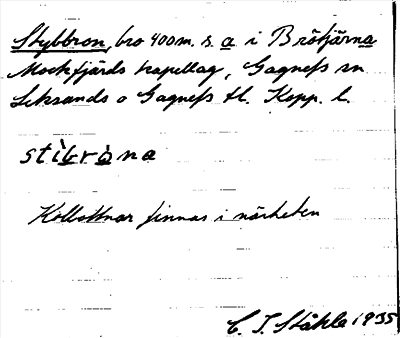 Stybbron, bro 400 m. s. a i Brötjärna
Mockfjärds kapellag, Gagnefs sn
Leksands o Gagnefs tl. Kopp. l.
stìbròna
Kolbottnar finnas i närheten
C. I. Ståhle 1935